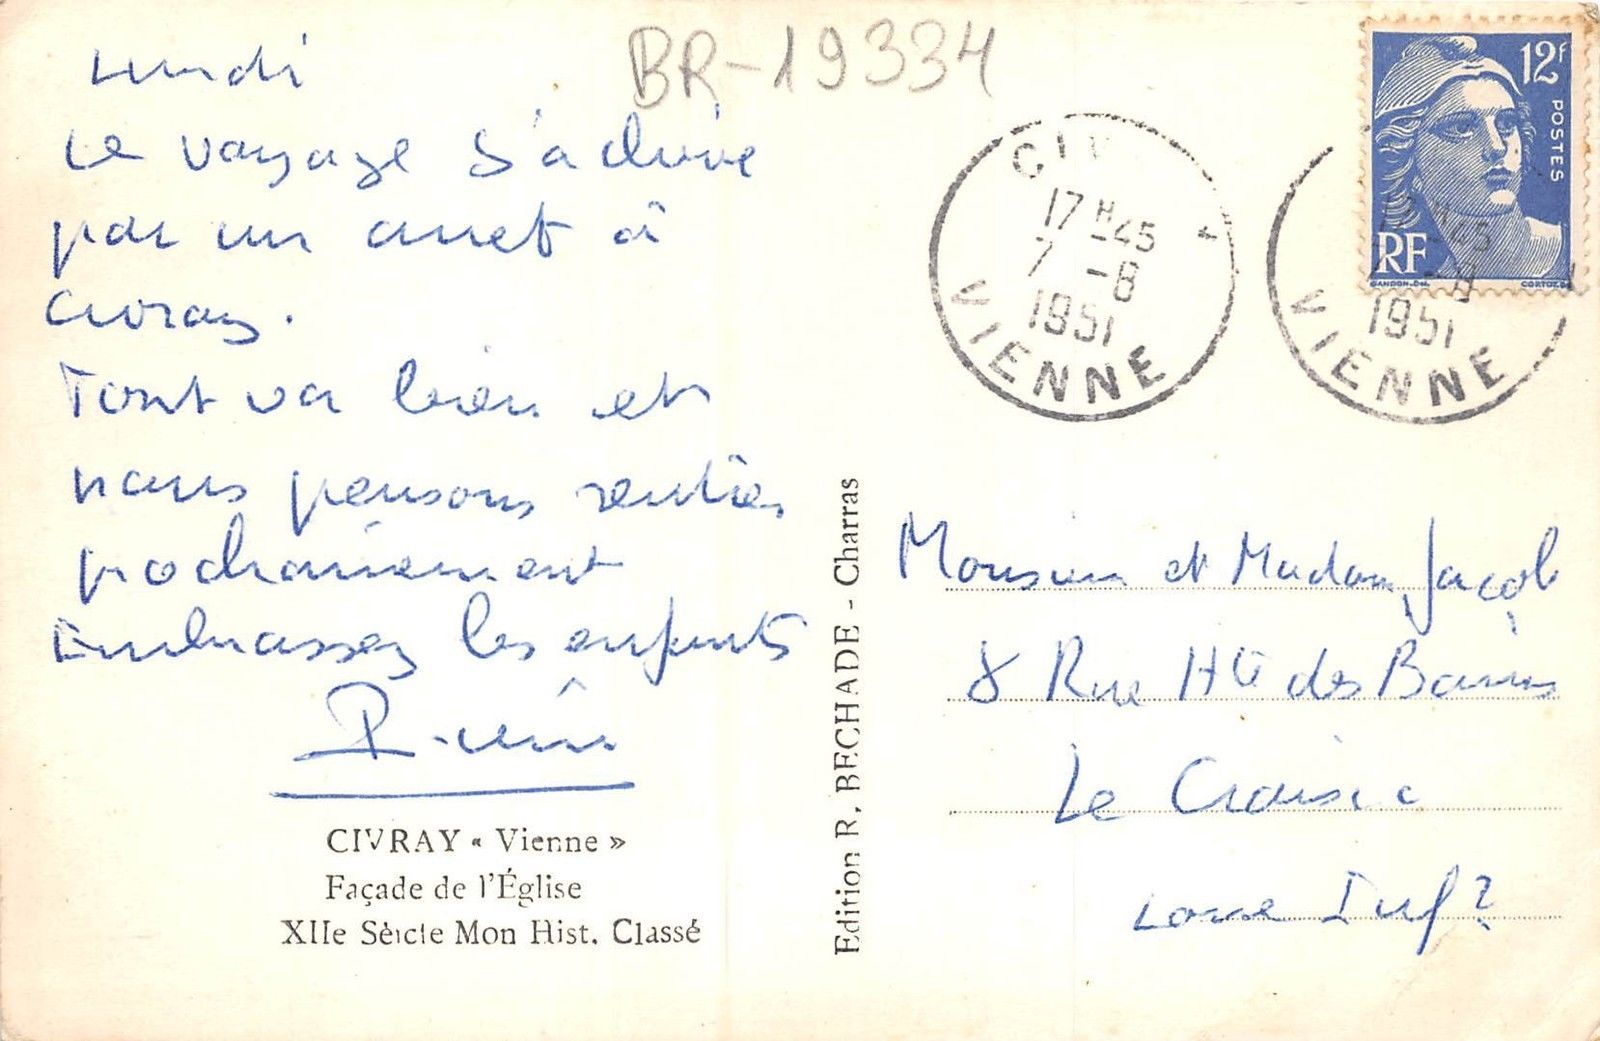 BR-19334
lundi
Le voyage s'achève
par un arret à
Civray.
Tout va bien et
nous pensons rentrer
prochainement
Embrassez les enfants
CIVRAY « Vienne »
Façade de l'Église
XIIe Sèicle Mon Hist. Classé
Edition R. BECHADE - Charras
CIV
17 H 45
7 -8
1951
VIENNE
12f
POSTES
RF
GANDON.Del.
CORTOT.
45
7 -8
1951
VIENNE
Monsieur et Madame Jacob
8 Rue Hte des Bains
Le Croisic
Loire Inf?